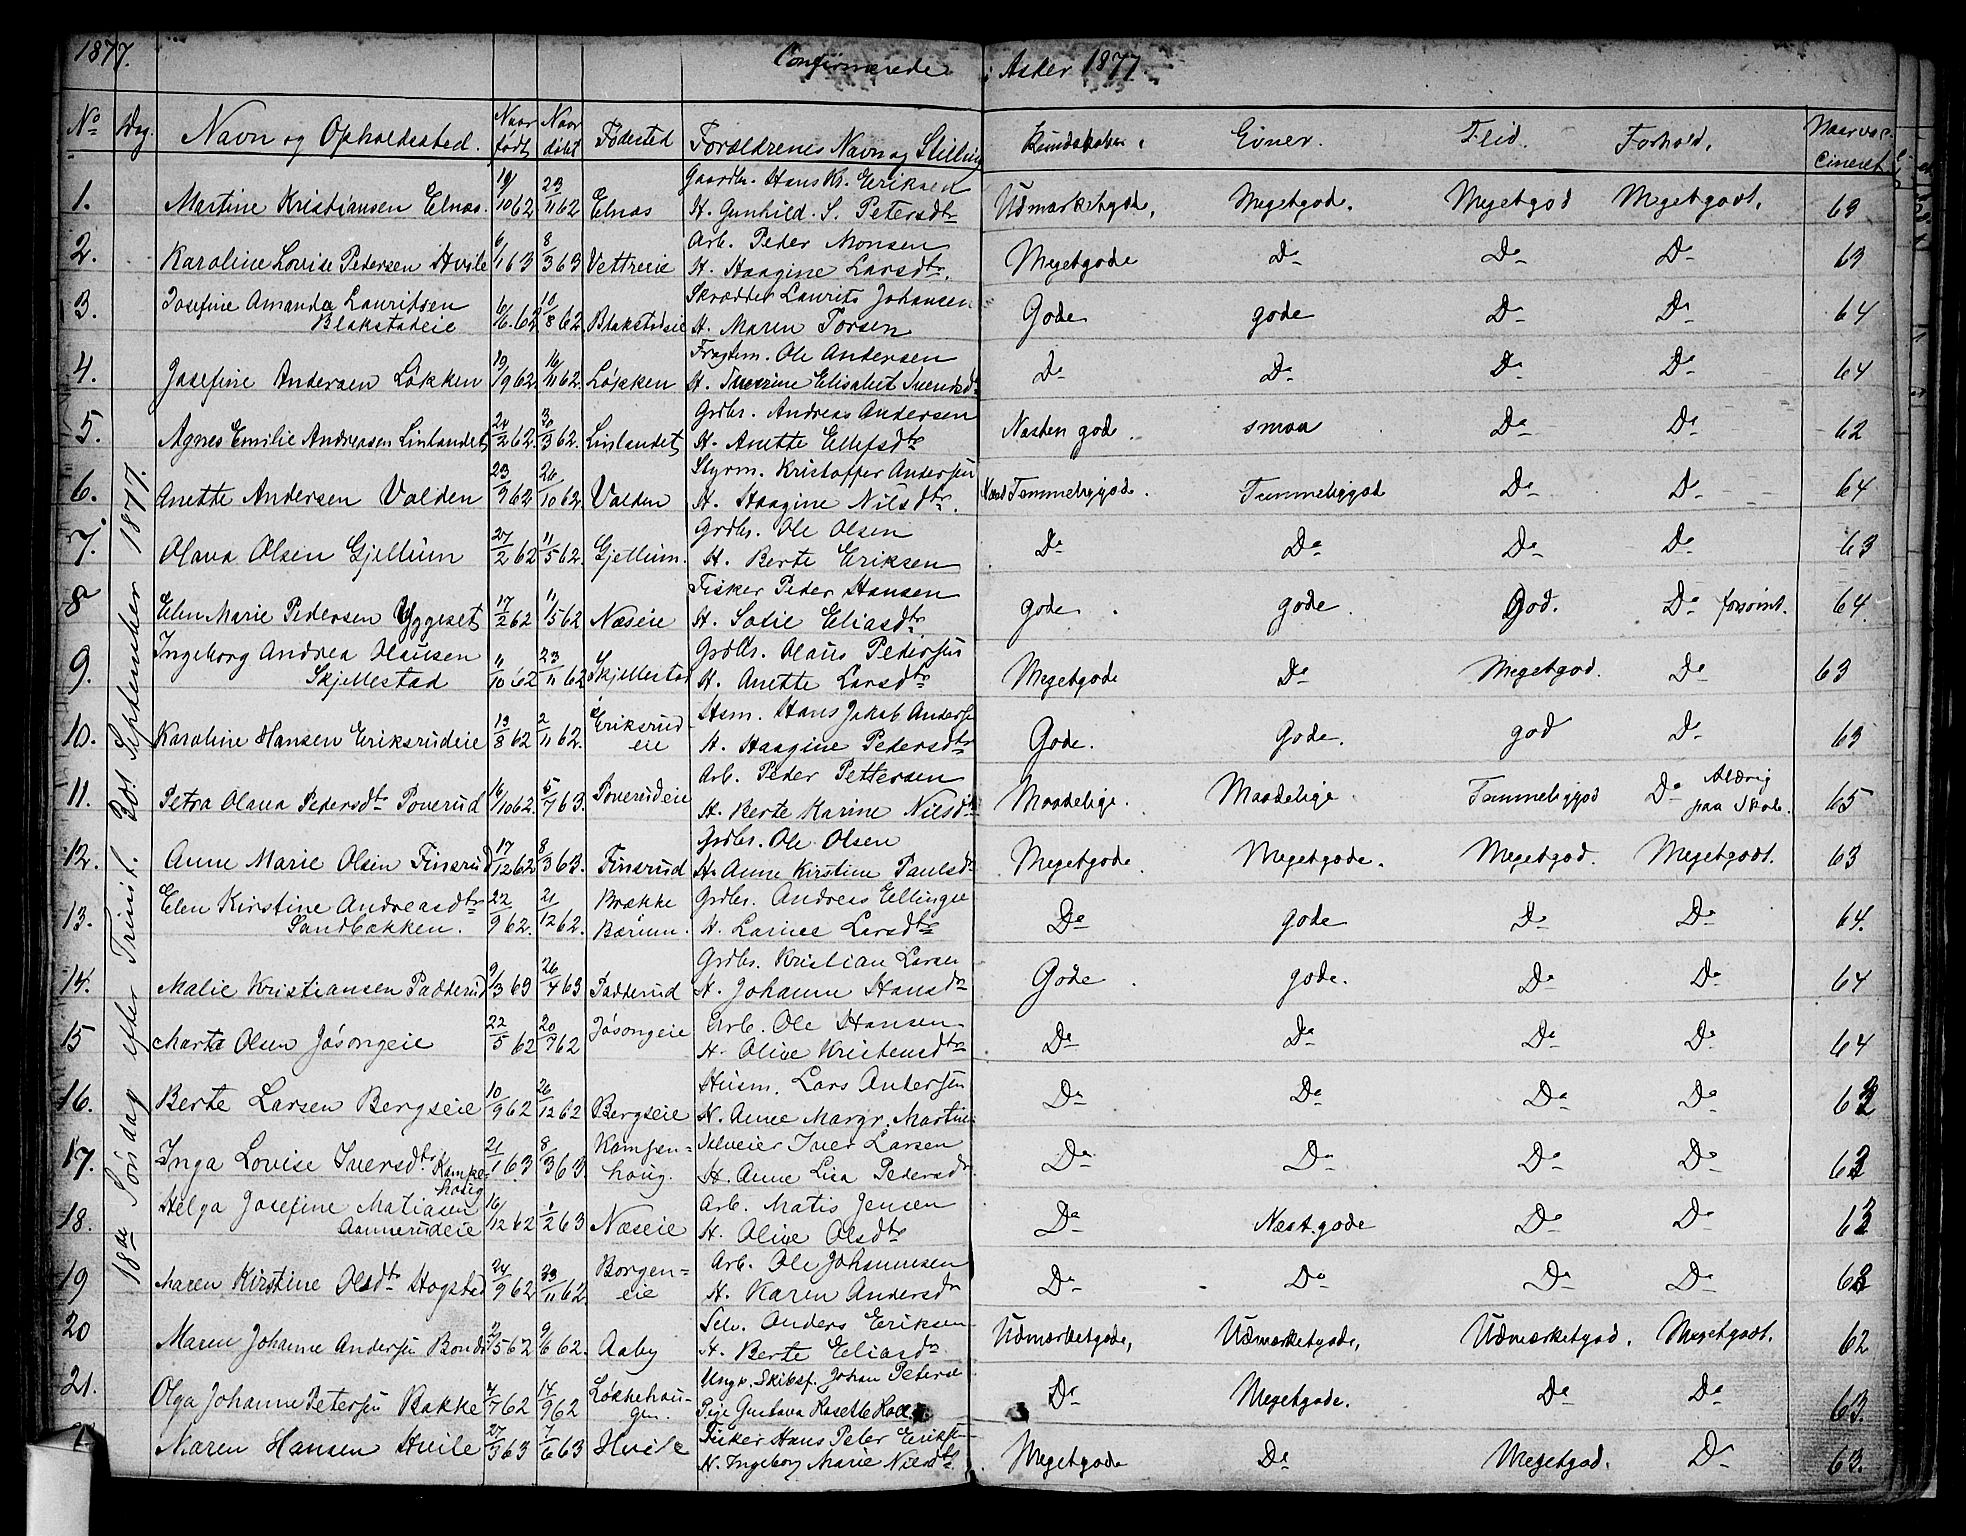 1877. Confirmerede i Asker 1877.
No Dag. Navn og Opholdssted. Naar født Naar døbt Fødested Forældrenes Navn og Stilling Kundskaber. Evner. Flid. Forhold. Naar vac-cineret
18de Søndag efter Trinit. 30. September 1877.
1. Martine Kristiansen Elnæs. 19/10 62 23/11 62 Elnæs Gaardbr. Hans Kr. Eriksen
H. Gunhild S. Petersdtr Udmærketgode. Megetgod. Megetgod Megetgodt. 63
2. Karoline Lovise Pedersen Hvile 6/1 63 8/3 63 Vettreeie Arb. Peder Monsen
H. Haagine Larsdtr. Megetgode Do Do Do 63
3. Josefine Amanda Lauritsen
Blakstadeie 6/6. 62 10/8 62 Blakstadeie Skrædder Laurits Johansen
H. Maren Torsen Gode gode Do Do 64
4. Josefine Andersen Løkken 19/9 62 16/11 62 Løkken Fragtem. Ole Andersen
H. Elisabet Svendsd Do Do Do Do 64
5. Agnes Emilie Andreasen Linlandet 24/2 62. 30/3 62. Linlandet Grdbr. Andreas Andersen
H. Anette Ellefsdtr Næsten god. smaa Do Do 62
6. Anette Andersen Valden 23/9 62 26/10 62 Valden Styrm. Kristoffer Andersen
H. Haagine Nilsdtr. Næst Temmeliggode. Temmeliggod Do Do 64
7. Olava Olsen Gjellum 27/2 62 11/5 62. Gjellum. Grdbr. Ole Olsen
H. Berte Eriksen Do Do Do Do 63
8 Elen Marie Pedersen Yggeset 17/2 62 11/5 62 Næseie Fisker Peder Hansen
H. Sofie Eliasdtr gode. gode. God. Do forsømt. 64.
9. Ingeborg Andrea Olausen
Skjellestad 11/10 62 23/11 62 Skjellestad Grdbr. Olaus Pedersen
H. Anette Larsdtr Megetgode Do Megetgod. Do 63
10. Karoline Hansen Eriksrudeie 13/8 62 2/11 62. Eriksrud
eie Hsm. Hans Jakob Anders
H. Haagine Pedersdtr Gode. Gode. god Do 63
11. Petra Olava Pedersdtr Poverud 16/10 62. 5/7 63. Poverudeie Arb. Peder Pettersen
H. Berte Karine Nilsdtr Maadelige. Maadelige Temmeliggod Do Aldrig
paa Skole. 65
12. Anne Marie Olsen Finsrud 17/12 62 8/3 63. Finsrud Grdbr. Ole Olsen
H. Anne Kirstine Paulsdr Megetgode Megetgode. Megetgod. Megetgodt. 63
13. Elen Kirstine Andreasdtr
Sandbakken. 22/9 62. 21/12 62. Brække
Bærum. Grdbr. Andreas Ellingse
H. Larsdtr Do gode Do Do 64.
14. Malie Kristiansen Padderud 9/3 63 26/4 63 Padderud Grdbr. Kristian Larsen
H. Johanne Hansdtr Gode gode. Do Do 64
15 Marta Olsen Jøsongeie 22/5 62 20/7 62 Jøsongeie Arb. Ole Hansen
H. Olive Kristensdtr Do Do Do Do 64
16. Berte Larsen Bergseie 10/9 62 26/12 62 Bergseie Husm. Lars Andersen
H. Anne Margr. Martin Do Do Do Do 63
17. Inga Lovise Iversdtr Kampe-
houg 21/1 63. 8/3 63. Kampen=
houg. Selveier Iver Larsen
H. Anne Lisa Pedersd Do Do Do Do 63
18. Helga Josefine Matiasen
Aannerudeie 16/12 62 1/2 63 Næseie Arb. Matis Jensen
H. Olive Olsdtr Do Næst. gode Do Do 63
19 Maren Kirstine Olsdtr Hogstad 24/9 62 23/11 62. Borgen=
eie Arb. Ole Johannesen
H. Karen Andersdr Do Do Do Do 63
20 Maren Johanne Andersen Bond 2/5 62 9/6 62. Aaby Selv. Anders Eriksen
H. Berte Eliasdr Udmærketgode, Udmærketgode, Udmærketgod. Megetgodt. 62
21. Olga Johanne Petersen Bakke 4/7 62 14/9 62 Løkkehau-
gen. Ungk. Skibsf. Johan Peters
Pige Gustava Do Megetgode. Do Do 63.
Maren Hansen Hvile 27/3 63 7/6 63 Hvile Fisker Hans Peter Eriks
H. Ingeborg Marie Nilsdtr Megetgode Do Megetgod. Do 63.